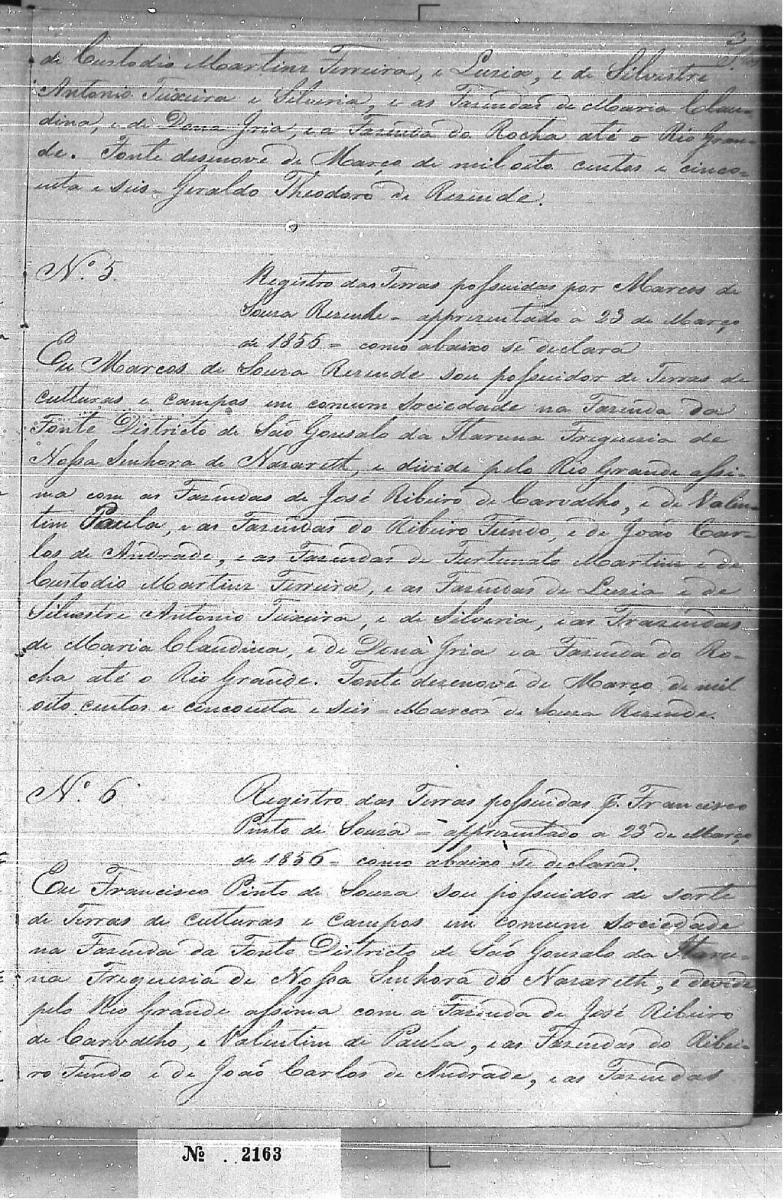 3
de Custodio Martins Ferreira, e Luzia, e de Silvestre
Antonio Teixeira e Silveria, e as Fazendas de Maria Clau-
dina, e de Dona Iria, e a Fazenda do Rocha até o Rio Gran-
de. Fonte desenove de Março de mil oito centos e cinco-
enta e seis - Geraldo Theodoro de Rezende.
Nº 5.
Registro das Terras possuidas por Marcos de
Souza Rezende - apprezentado a 23 de Março
de 1856 - como abaixo se declara
Eu Marcos de Souza Rezende sou possuidor de Terras de
culturas e campos em comum sociedade na Fazenda da
Fonte Districto de São Gonsalo da Ituruna Freguezia de
Nossa Senhora de Nazareth, e divide pelo Rio Grande assi-
ma com as Fazendas de José Ribeiro de Carvalho, e de Valen-
tim Paula, e as Fazendas do Ribeiro Fundo, e de João Car-
los de Andrade, e as Fazendas de Furtunato Martins e de
Custodio Martins Ferreira, e as Fazendas de Luzia e de
Silvestre Antonio Teixeira, e de Silveria, e as Frazendas
de Maria Claudina, e de Dona Iria e a Fazenda do Ro-
cha até o Rio Grande. Fonte desenove de Março de mil
oito centos e cinconta e seis - Marcos de Souza Rezende.
Nº 6
Registro das Terras possuidas p. Francisco
Pinto de Souza - apprezentado a 23 de Março
de 1856 - como abaixo se declara.
Eu Francisco Pinto de Souza sou possuidor de sorte
de Terras de culturas e campos em comum sociedade
na Fazenda da Fonte Districto de São Gonsalo da Ituru-
na Freguezia de Nossa Senhora do Nazareth, e devide
pelo Rio Grande assima com a Fazenda de José Ribeiro
de Carvalho, e Valentim de Paula, e as Fazendas do Ribei-
ro Fundo e de João Carlos de Andrade, e as Fazendas
Nº . 2163